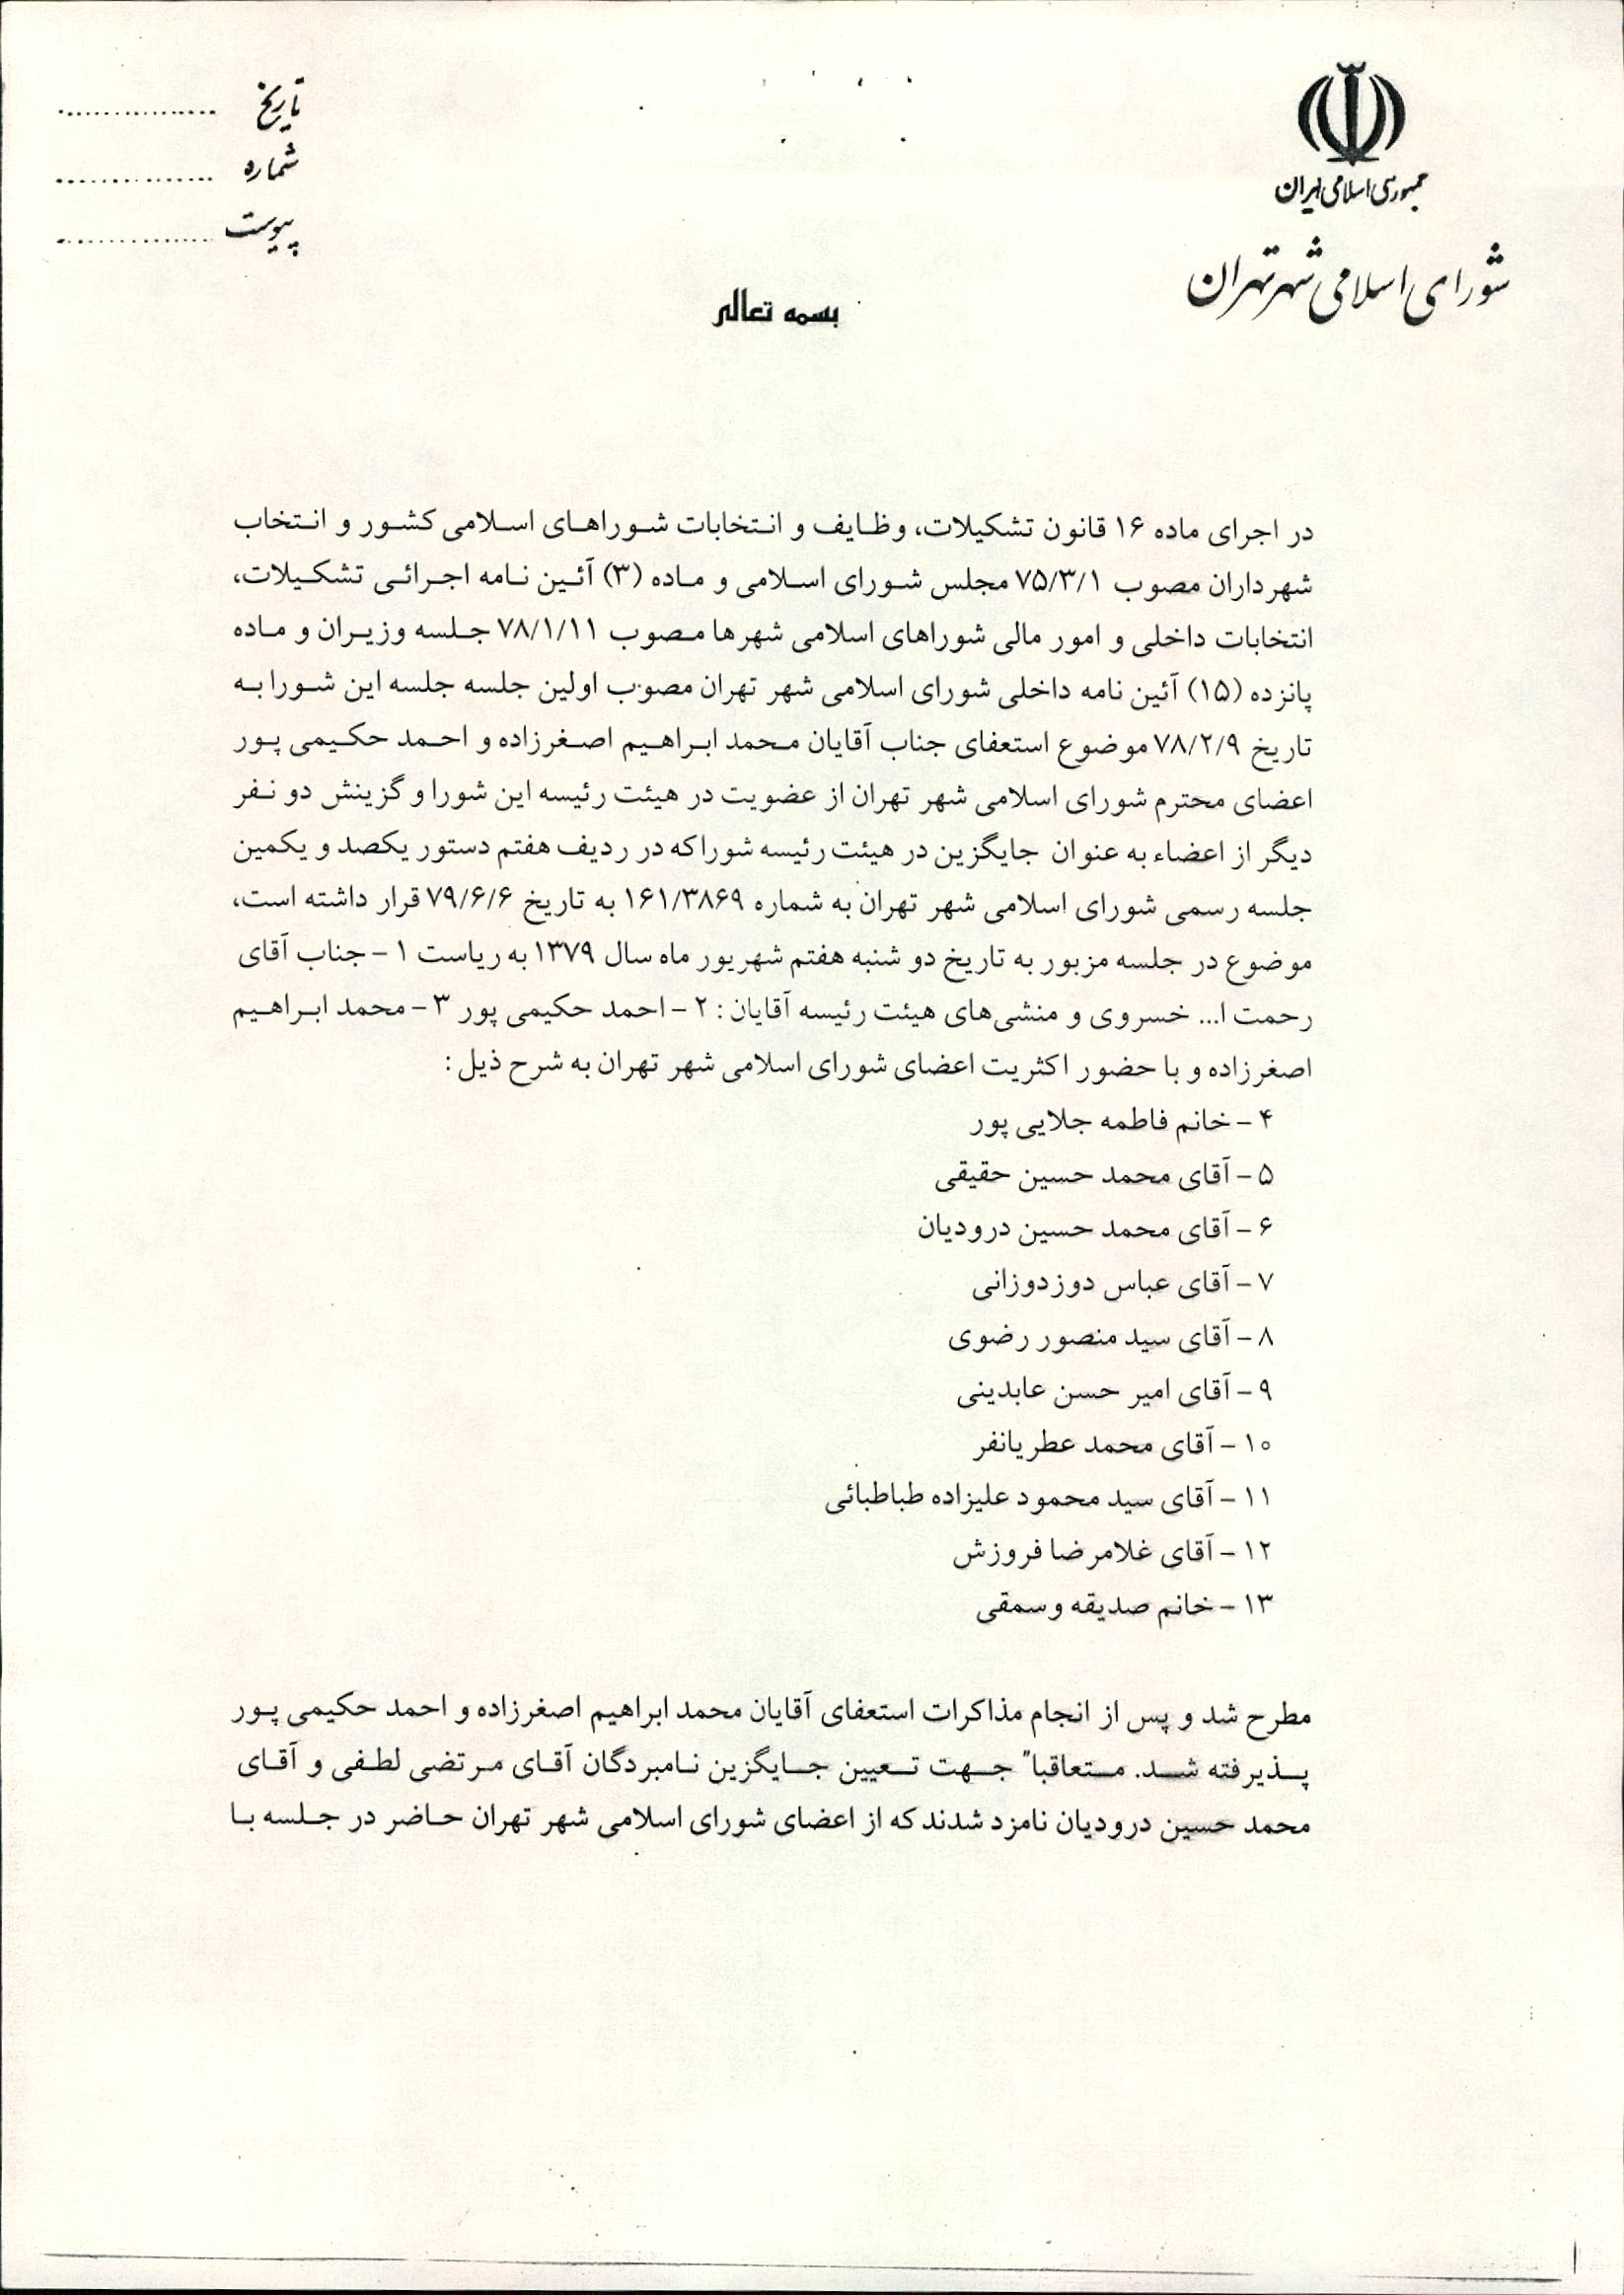 جمهوری اسلامی ایران
شورای اسلامی شهر تهران
تاریخ ................
شماره ................
پیوست ................
بسمه تعالی
در اجرای ماده ۱۶ قانون تشکیلات، وظایف و انتخابات شوراهای اسلامی کشور و انتخاب
شهرداران مصوب ۷۵/۳/۱ مجلس شورای اسلامی و ماده (۳) آئین نامه اجرائی تشکیلات،
انتخابات داخلی و امور مالی شوراهای اسلامی شهرها مصوب ۷۸/۱/۱۱ جلسه وزیران و ماده
پانزده (۱۵) آئین نامه داخلی شورای اسلامی شهر تهران مصوب اولین جلسه جلسه این شورا به
تاریخ ۷۸/۲/۹ موضوع استعفای جناب آقایان محمد ابراهیم اصغرزاده و احمد حکیمی پور
اعضای محترم شورای اسلامی شهر تهران از عضویت در هیئت رئیسه این شورا و گزینش دو نفر
دیگر از اعضاء به عنوان جایگزین در هیئت رئیسه شورا که در ردیف هفتم دستور یکصد و یکمین
جلسه رسمی شورای اسلامی شهر تهران به شماره ۱۶۱/۳۸۶۹ به تاریخ ۷۹/۶/۶ قرار داشته است،
موضوع در جلسه مزبور به تاریخ دو شنبه هفتم شهریور ماه سال ۱۳۷۹ به ریاست ۱ - جناب آقای
رحمت ا... خسروی و منشی‌های هیئت رئیسه آقایان : ۲ - احمد حکیمی پور ۳ - محمد ابراهیم
اصغرزاده و با حضور اکثریت اعضای شورای اسلامی شهر تهران به شرح ذیل :
۴ - خانم فاطمه جلایی پور
۵ - آقای محمد حسین حقیقی
۶ - آقای محمد حسین درودیان
۷ - آقای عباس دوزدوزانی
۸ - آقای سید منصور رضوی
۹ - آقای امیر حسن عابدینی
۱۰ - آقای محمد عطریانفر
۱۱ - آقای سید محمود علیزاده طباطبائی
۱۲ - آقای غلامرضا فروزش
۱۳ - خانم صدیقه وسمقی
مطرح شد و پس از انجام مذاکرات استعفای آقایان محمد ابراهیم اصغرزاده و احمد حکیمی پور
پذیرفته شد. متعاقبا" جهت تعیین جایگزین نامبردگان آقای مرتضی لطفی و آقای
محمد حسین درودیان نامزد شدند که از اعضای شورای اسلامی شهر تهران حاضر در جلسه با